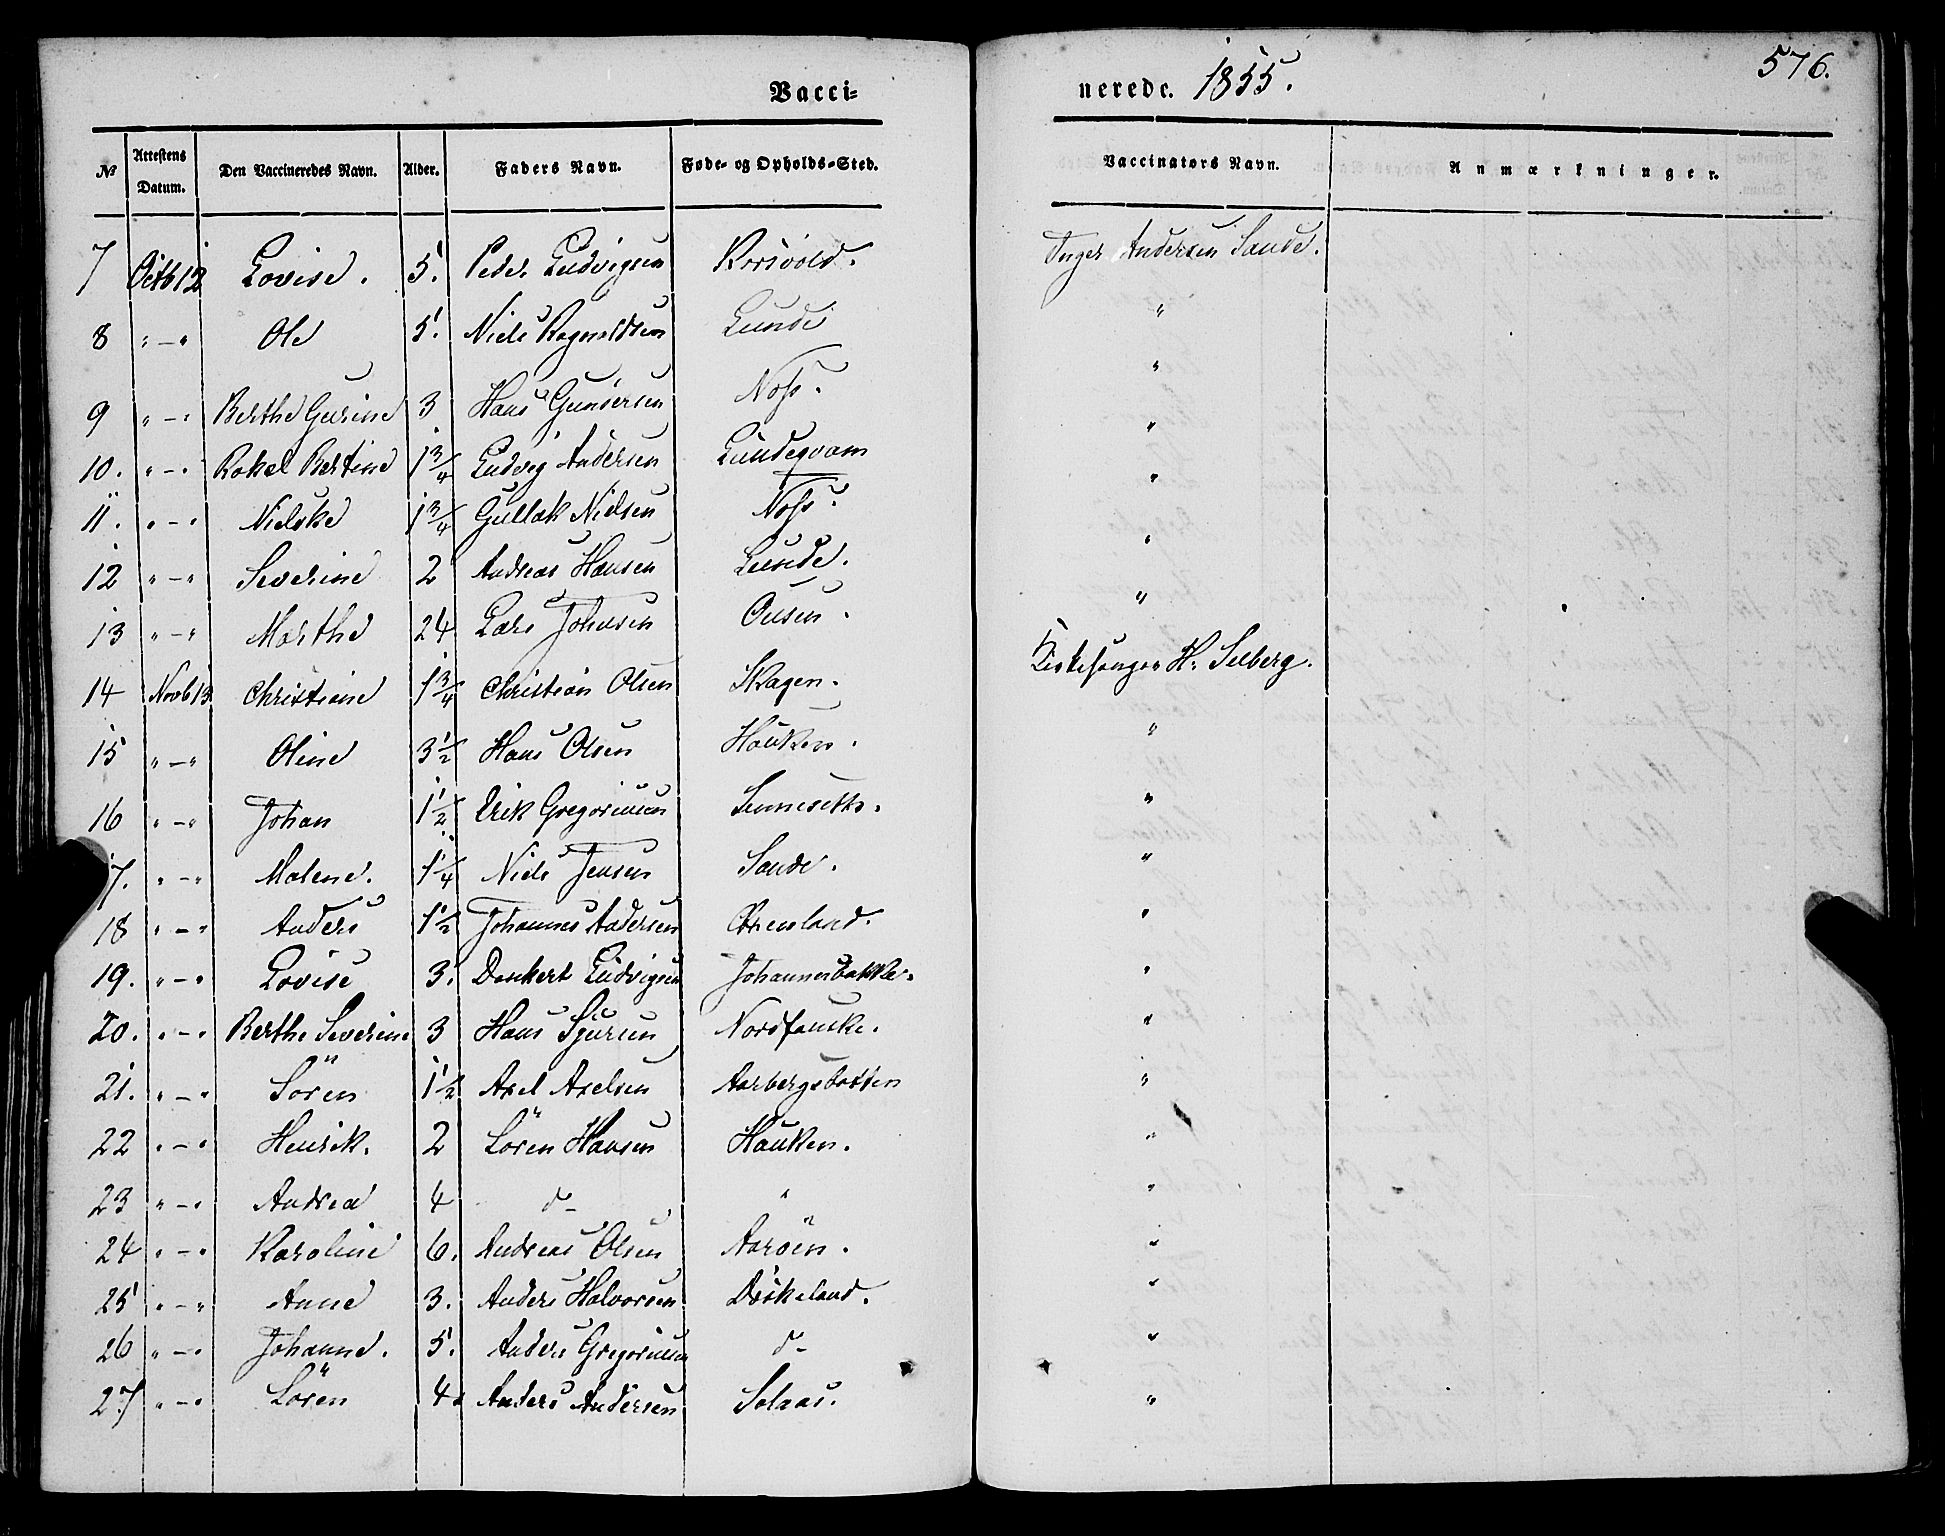 576.
Vacci= nerede. 1855.
№ Attestens Datum. Den Vaccineredes Navn. Alder. Faders Navn. Føde- og Opholds-Sted. Vaccinatørs Navn. Anmærkninger.
7 Octb 12 Lovise. 5. Peder Ludvigsen Korsvold. Inger Andersen Sande.
8 " — " Ole 5. Niels Ragnoldsen Lunde "
9 " — " Berthe Gurine 3 Hans Gunsersen Noss. "
10. " — " Rakel Bertine 1 3/4 Ludvig Andersen Lundeqvam "
11. " — " Nielske 1 3/4 Gullak Nielsen Noss. "
12 " — " Severine 2 Andreas Hansen Lunde. "
13 " — " Marthe 24 Lars Johnsen Ousen. "
14 Novb 13 Christiane 1 3/4 Christian Olsen Skagen. Kirkesanger H. Selberg.
15 " — " Oline 3 1/2 Hans Olsen Hauken. "
16 " — " Johan 1 1/2 Erik Gregoriusen "
17. " — " Malene. 1 1/4 Niels Jensen Sande. "
18 " — " Anders 1 1/2 Johannes Andersen "
19. " — " Lovise 3. Denkert Ludvigsen Johannesbakke. "
20. " — " Berthe Severine 3 Hans Sjursen Nordfauske. "
21. " — " Sören 1 1/2 Axel Axelsen "
22 " — " Henrik. 2 Sören Hansen Hauken. "
23 " — " Andrea 4 d— " "
24 " — " Karoline 6. Andreas Olsen Aaröen. "
25 " — " Anne 3. Anders Halvorsen Diskeland. "
26 " — " Johanne. 5. Anders Gregoriusen d— "
27 " — " Sören 4. Anders Andersen Solaas. "